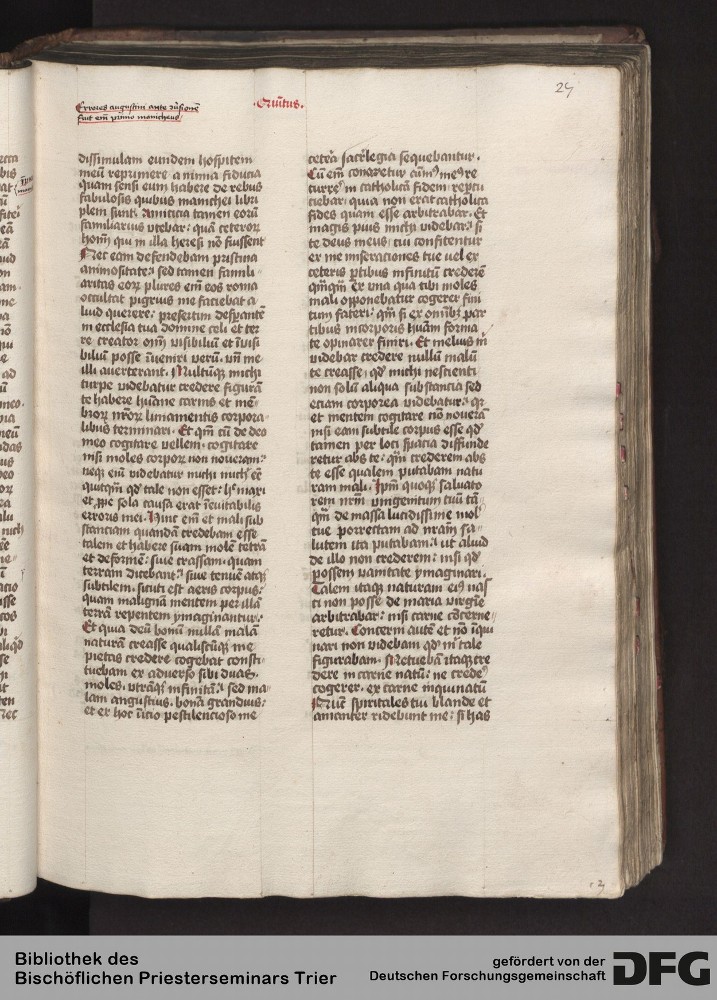 Errores augustini ante cõuersionẽ
fuit em̃ primo manicheus
Quĩtus.
24
dissimulam eundem hospitem
meũ reprimere a nimia fiducia
quam sensi eum habere de rebus
fabulosis quibus manichei libri
pleni sunt. Amiticia tamen eorũ
familiarius vtebar: quã ceteroꝝ
homĩ qui in illa heresi nõ fuissent
Nec eam defendebam pristina
animositate: sed tamen famili
aritas eoꝝ plures em̃ eos roma
occultat pigrius me faciebat a
liud querere: presertim despante
in ecclesia tua domine celi et ter
re creator om̃ visibiliũ et ĩuisi
biliũ posse ĩueniri verũ. vñ me
illi auerterant. Multũqꝫ michi
turpe videbatur credere figurã
te habere hũane carnis et mẽ
broꝝ nr̃oꝝ liniamentis corpora
libus terminari. Et qm̃ cũ de deo
meo cogitare vellem. cogitare
nisi moles corpoꝝ non noueram:
neqꝫ em̃ videbatur michi mich' eẽ
quitqm̃ qd' tale non esset: h' maxi
et ꝓpe sola causa erat ĩeuitabilis
erroris mei. Hinc em̃ et mali sub
stanciam quandã credebam esse
talem et habere suam molẽ tetrã
et deformẽ: siue crassam. quam
terram dicebant: siue tenuẽ atqꝫ
subtilem. sicuti est aeris corpus:
quam malignã mentem per illã
terrã repentem ymaginantur.
Et quia deũ bonũ nullã malã
naturã creasse qualiscũqꝫ me
pietas credere cogebat consti
tuebam ex aduerso sibi duas
moles. vtrãqꝫ infinitã: sed ma
lam angustius. bonã grandius:
et ex hoc ĩitio pestilencioso me
cetera sacrilegia sequebantur.
Cũ em̃ conaretur aĩm9 me9 re
currẽ in catholicã fidem. repcu
ciebar: quia non erat catholica
fides quam esse arbitrabar. Et
magis pius michi videbar: si
te deus meus cui confitentur
ex me miseraciones tue uel ex
ceteris ptibus infinitũ crederẽ
qm̃qm̃ ex vna qua tibi moles
mali opponebatur cogerer fini
tum fateri: qm̃ si ex omĩbꝫ par
tibus in corporis hũani forma
te opinarer finiri. Et melius m̃
videbar credere nullũ malũ
te creasse. qd' michi nescienti
non solũ aliqua substancia sed
eciam corporea videbatur. qꝛ
et mentem cogitare nõ noueram
nisi eam subtile corpus esse qd'
tamen per loci spacia diffunde
retur abs te: qm̃ crederem abs
te esse qualem putabam natu
ram mali. Ipm̃ quoqꝫ saluato
rem nr̃m vnigenitum tuũ tã
qm̃ de massa lucidissime mol'
tue porrectam ad nr̃am sa
lutem ita putabam: ut aliud
de illo non crederem: nisi qd'
possem vanitate ymaginari.
Talem itaqꝫ naturam ei9 nas
ci non posse de maria virgĩe
arbitrabar: nisi carne cõcerne
retur. Concerni autẽ et nõ ĩqui
nari non videbam qd' m̃ tale
figurabam. Metuebã itaqꝫ cre
dere in carne natũ: ne crede'
cogerer. ex carne inquinatũ
Nũc spiritales tui blande et
amanter ridebunt me: si has
Bibliothek des
Bischöflichen Priesterseminars Trier
gefördert von der
Deutschen Forschungsgemeinschaft
DFG